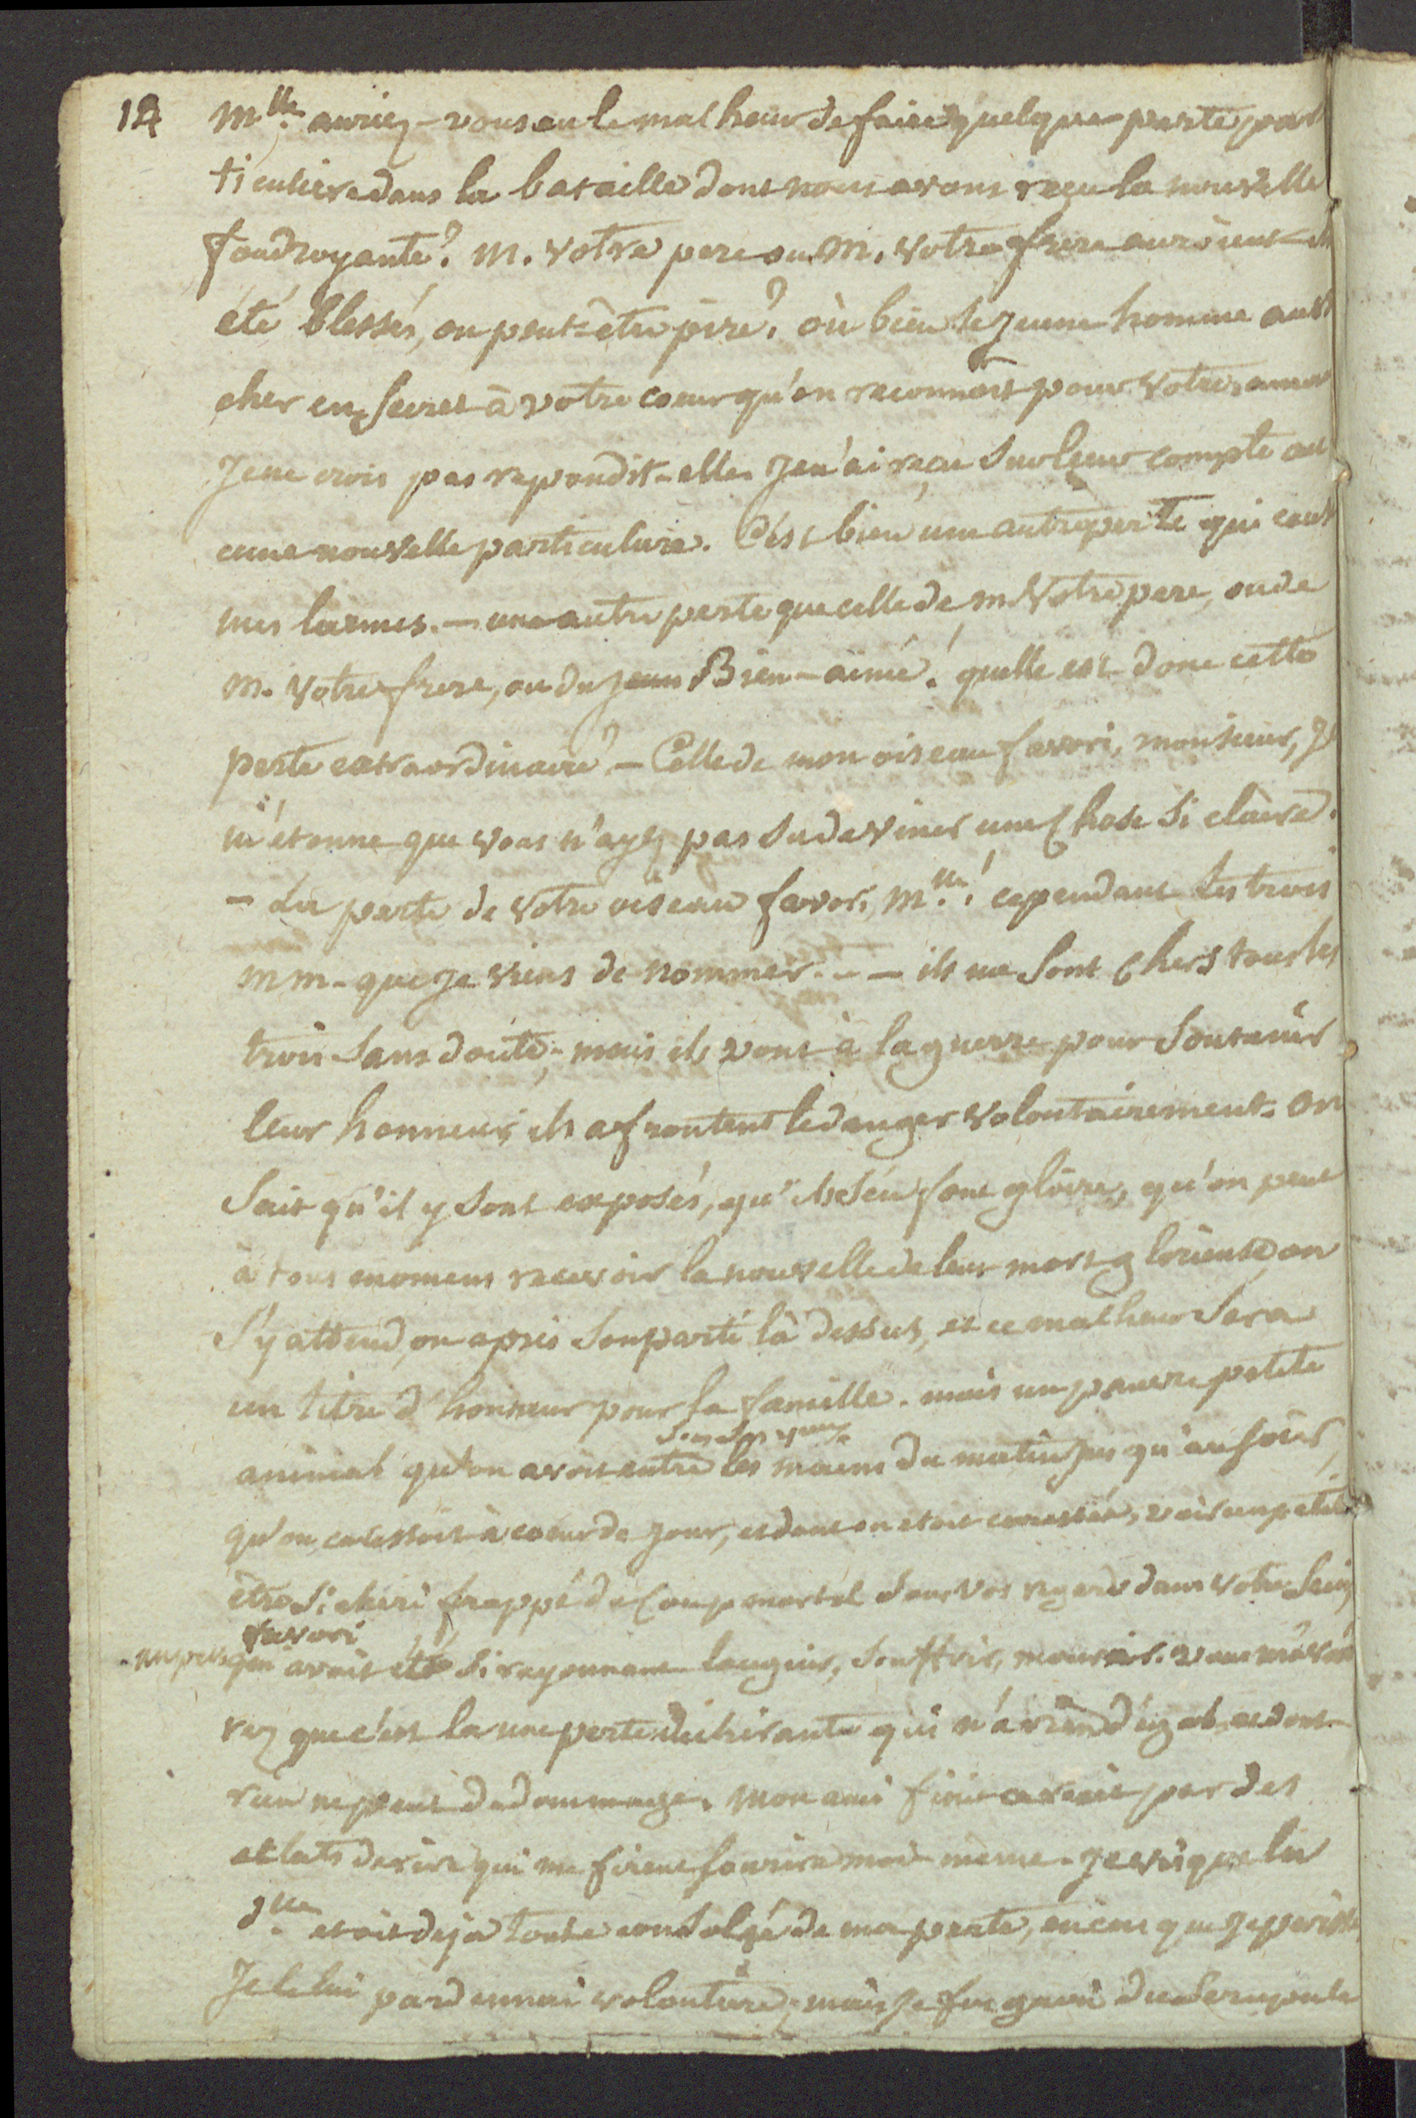 12
Mlle auriez-vous eu le malheur de faire quelque perte par
ticuliere dans la bataille dont nous avons reçu la nouvelle
foudroyante? M. votre pere ou M. votre frere auroient-ils
été blessés, ou peut-être pire? où bien le jeune homme aussi
cher en secret à votre coeur qu'on reconnoit pour votre amant
Je ne crois pas repondit-elle. Je n'ai reçu sur leur compte au
cune nouvelle particuliere. C'est bien une autre perte qui cause
mes larmes. — une autre perte que celle de M. Votre pere, ou de
M. Votre frere, ou du jeune Bien-aimé! quelle est donc cette
perte extraordinaire? — Celle de mon oiseau favori, monsieur, Je
m'étonne que vous n'ayez pas su deviner une chose si claire.
— La perte de votre oiseau favori, Mlle! cependant les trois
MM. que je viens de nommer. — — ils me sont chers tous les
trois sans doute; mais ils vont à la guerre pour soutenir
leur honneur, ils afrontent le danger volontairement. On
sait qu'il y sont exposés, qu'ils s'en font gloire, qu'on peut
à tous momens recevoir la nouvelle de leur mort glorieuse on
s'y attend, on a pris son parti là dessus, et ce malheur sera
un titre d'honneur pour la famille. mais un pauvre petite
sous les yeux
animal qu'on avoit entre les mains du matin jusqu'au soir,
qu'on caressoit à coeur de jour, et dont on etoit caressée, voir un petit
être si chéri frappé du coup mortel sous vos regards dans votre sein,
favori
qui avoit été si rayonnant languir, souffrir, mourir. vous m'avoue
rez que c'est la une perte déchirante qui n'a rien d'égal et dont
rien ne peut dedommager. Mon ami finit par des
eclats de rire qui me firent sourire moi-même. Je vis que la
dlle etoit deja toute consolée de ma perte, encore que
Je le lui pardonnai volontiers; mais je fus du